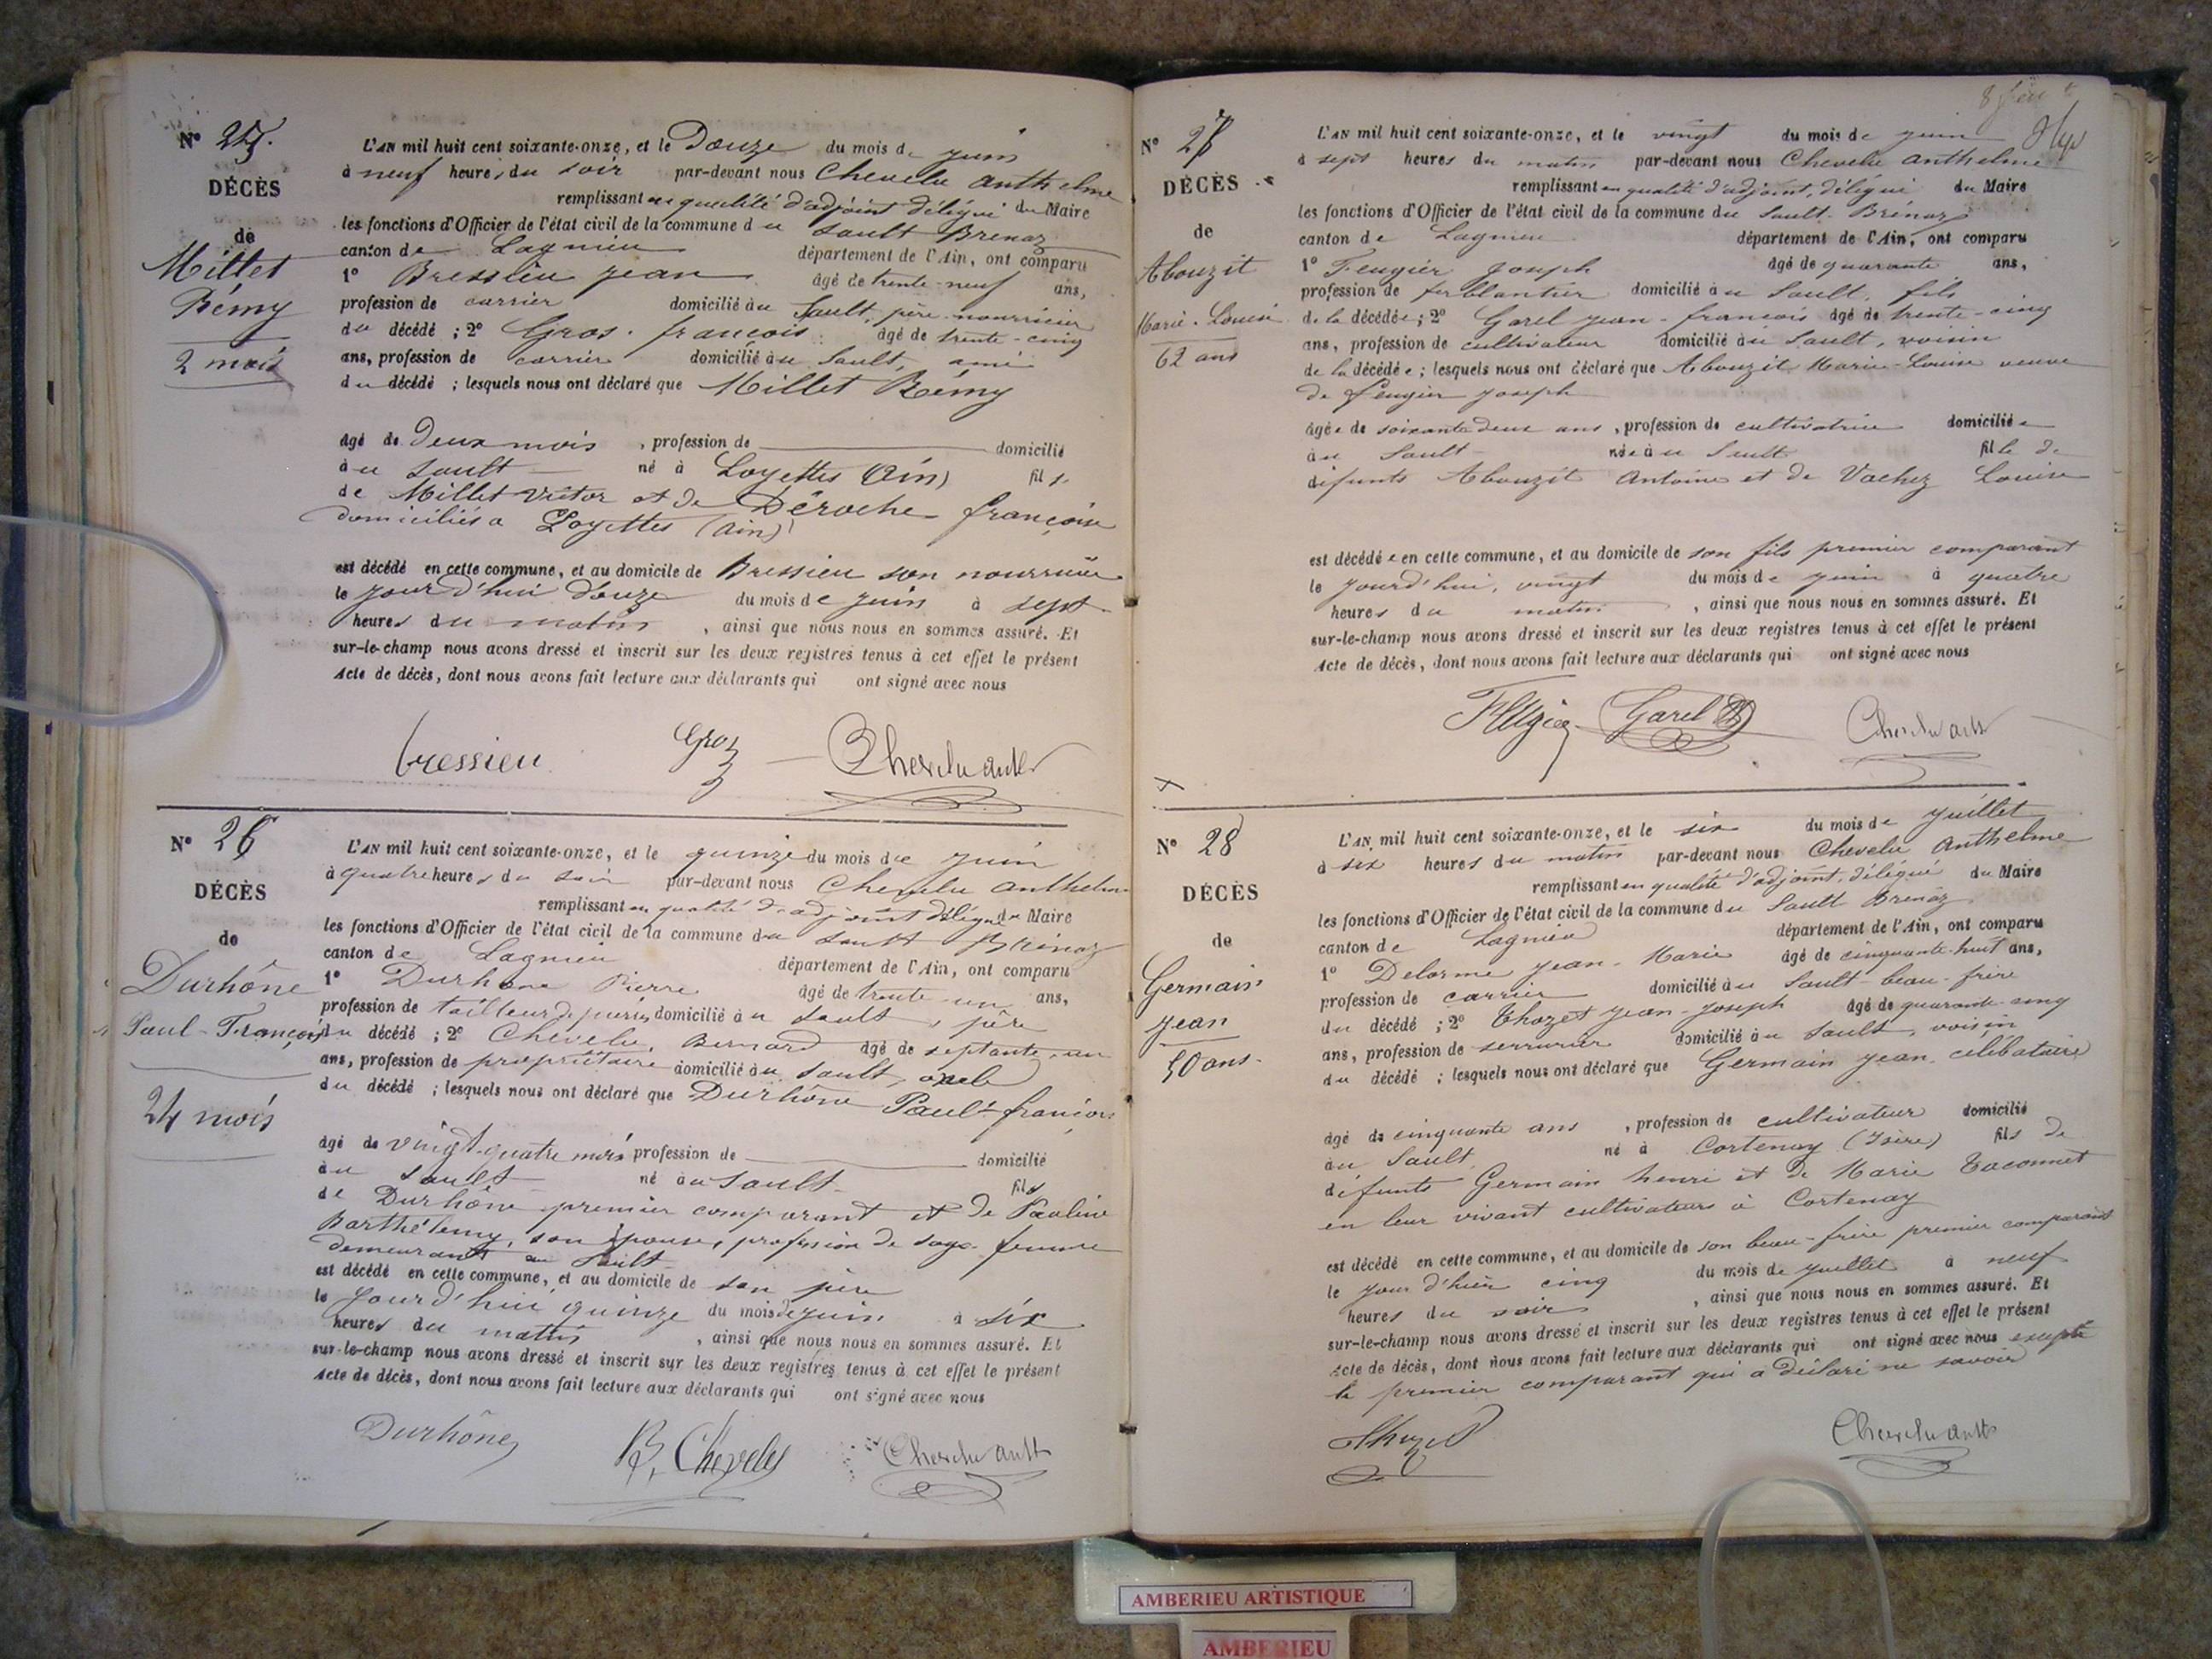 N° 25.
DÉCÈS
de
Millet
Rémy
2 mois
L'AN mil huit cent soixante-onze, et le Douze du mois de juin
à neuf heures du soir par-devant nous Chevelu Anthelme
remplissant en qualité d'adjoint délégué du Maire
les fonctions d'Officier de l'état civil de la commune du Sault Brenaz
canton de Lagnieu département de l'Ain, ont comparu
1° Bressieu Jean âgé de trente-neuf ans,
profession de carrier domicilié au Sault, père nourricier
du décédé ; 2° Gros. françois âgé de trente-cinq
ans, profession de carrier domicilié au Sault, ami
du décédé ; lesquels nous ont déclaré que Millet Rémy
âgé de Deux mois , profession de domicilié
au Sault né à Loyettes (Ain) fils
de Millet Victor et de Déroche françoise
domiciliés a Loyettes (Ain)
est décédé en cette commune, et au domicile de Bressieu son nourricier
le jour d'hui douze du mois de juin à sept
heures du matin , ainsi que nous nous en sommes assuré. Et
sur-le-champ nous avons dressé et inscrit sur les deux registres tenus à cet effet le présent
Acte de décès, dont nous avons fait lecture aux déclarants qui ont signé avec nous
bressieu Groz Chevelu anth
N° 26
DÉCÈS
de
Durhône
Paul-François
24 mois
L'AN mil huit cent soixante-onze, et le quinze du mois de juin
à quatre heures du soir par-devant nous Chevelu Anthelme
remplissant en qualité d'adjoint délégué du Maire
les fonctions d'Officier de l'état civil de la commune du Sault Brénaz
canton de Lagnieu département de l'Ain, ont comparu
1° Durhône Pierre âgé de trente-un ans,
profession de tailleur de pierres domicilié au Sault, père
du décédé ; 2° Chevelu Bernard âgé de septante-un
ans, profession de propriétaire domicilié au Sault, oncle
du décédé ; lesquels nous ont déclaré que Durhône Paul-françois
âgé de vingt-quatre mois profession de domicilié
au Sault né au Sault fils
de Durhône premier comparant et de Pauline
Barthélemy, son épouse, profession de sage-femme
demeurant au Sault
est décédé en cette commune, et au domicile de son père
le jour d'hui quinze du mois de juin à six
heures du matin , ainsi que nous nous en sommes assuré. Et
sur-le-champ nous avons dressé et inscrit sur les deux registres tenus à cet effet le présent
Acte de décès, dont nous avons fait lecture aux déclarants qui ont signé avec nous
Durhône B, Chevelu Chevelu anth
N° 27
DÉCÈS
de
Abouzit
Marie-Louise
62 ans
L'AN mil huit cent soixante-onze, et le vingt du mois de juin
à sept heures du matin par-devant nous Chevelu Anthelme
remplissant en qualité d'adjoint, délégué du Maire
les fonctions d'Officier de l'état civil de la commune du Sault-Brénaz
canton de Lagnieu département de l'Ain, ont comparu
1° Feugier Joseph âgé de quarante ans,
profession de ferblantier domicilié au Sault, fils
de la décédée ; 2° Garel Jean-françois âgé de trente-cinq
ans, profession de cultivateur domicilié au Sault, voisin
de la décédée ; lesquels nous ont déclaré que Abouzit Marie-Louise veuve
de feugier Joseph
âgée de soixante deux ans , profession de cultivatrice domiciliée
au Sault née au Sault fille de
défunts Abouzit Antoine et de Vachez Louise
est décédée en cette commune, et au domicile de son fils premier comparant
le jourd'hui, vingt du mois de juin à quatre
heures du matin , ainsi que nous nous en sommes assuré. Et
sur-le-champ nous avons dressé et inscrit sur les deux registres tenus à cet effet le présent
Acte de décès, dont nous avons fait lecture aux déclarants qui ont signé avec nous
Feugier Garel Chevelu anth
N° 28
DÉCÈS
de
Germain
Jean
50 ans.
L'AN mil huit cent soixante-onze, et le six du mois de juillet
à six heures du matin par-devant nous Chevelu Anthelme
remplissant en qualité d'adjoint, délégué du Maire
les fonctions d'Officier de l'état civil de la commune du Sault Brenaz
canton de Lagnieu département de l'Ain, ont comparu
1° Delorme Jean-Marie âgé de cinquante-huit ans,
profession de carrier domicilié au Sault beau-frère
du décédé ; 2° Thozet Jean-Joseph âgé de quarante-cinq
ans, profession de serrurier domicilié au Sault, voisin
du décédé ; lesquels nous ont déclaré que Germain Jean, célibataire
âgé de cinquante ans , profession de cultivateur domicilié
au Sault né à Cortenay (Isère) fils de
défunts Germain henri et de Marie Taconnet
en leur vivant cultivateurs à Cortenay
est décédé en cette commune, et au domicile de son beau-frère premier comparant
le jour d'hier cinq du mois de juillet à neuf
heures du soir , ainsi que nous nous en sommes assuré. Et
sur-le-champ nous avons dressé et inscrit sur les deux registres tenus à cet effet le présent
Acte de décès, dont nous avons fait lecture aux déclarants qui ont signé avec nous excepté
le premier comparant qui a déclaré ne savoir
Thozet Chevelu anth
AMBERIEU ARTISTIQUE
AMBERIEU